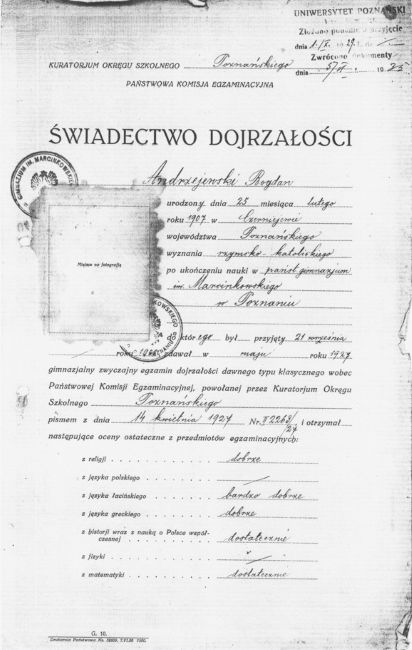 UNIWERSYTET POZNAŃSKI
Złożono
dnia
Zwrócono dokumenty
dnia
KURATORJUM OKRĘGU SZKOLNEGO Poznańskiego
PAŃSTWOWA KOMISJA EGZAMINACYJNA
ŚWIADECTWO DOJRZAŁOŚCI
Andrzejewski Bogdan
urodzony dnia 25 miesiąca lutego
roku 1907 w Czerniejewie
województwa Poznańskiego
wyznania rzymsko-katolickiego
po ukończeniu nauki w państ. gimnazjum
im. Marcinkowskiego
w Poznaniu
Miejsce na fotografję
do którego był przyjęty 21 września
roku zdawał w maju roku 1927
gimnazjalny zwyczajny egzamin dojrzałości dawnego typu klasycznego wobec
Państwowej Komisji Egzaminacyjnej, powołanej przez Kuratorjum Okręgu
Szkolnego Poznańskiego
pismem z dnia 14 kwietnia 1927 Nr. i otrzymał
następujące oceny ostateczne z przedmiotów egzaminacyjnych:
z religji dobrze
z języka polskiego
z języka łacińskiego bardzo dobrze
z języka greckiego dobrze
z historji wraz z nauką o Polsce współ-
czesnej dostatecznie
z fizyki
z matematyki dostatecznie
G. 10.